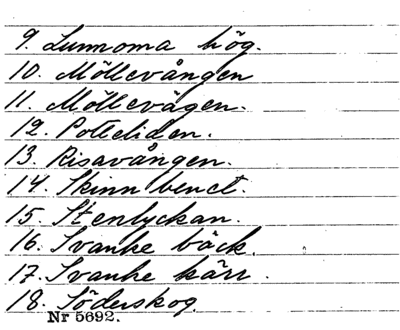 9. Lunnoma hög.
10. Möllevången
11. Möllevägen.
12. Potteliden.
13. Risavången.
14. Skinnbenet.
15. Stenlyckan.
16. Svanke bäck.
17. Svanke kärr.
18. Söderskog.
Nr 5692.